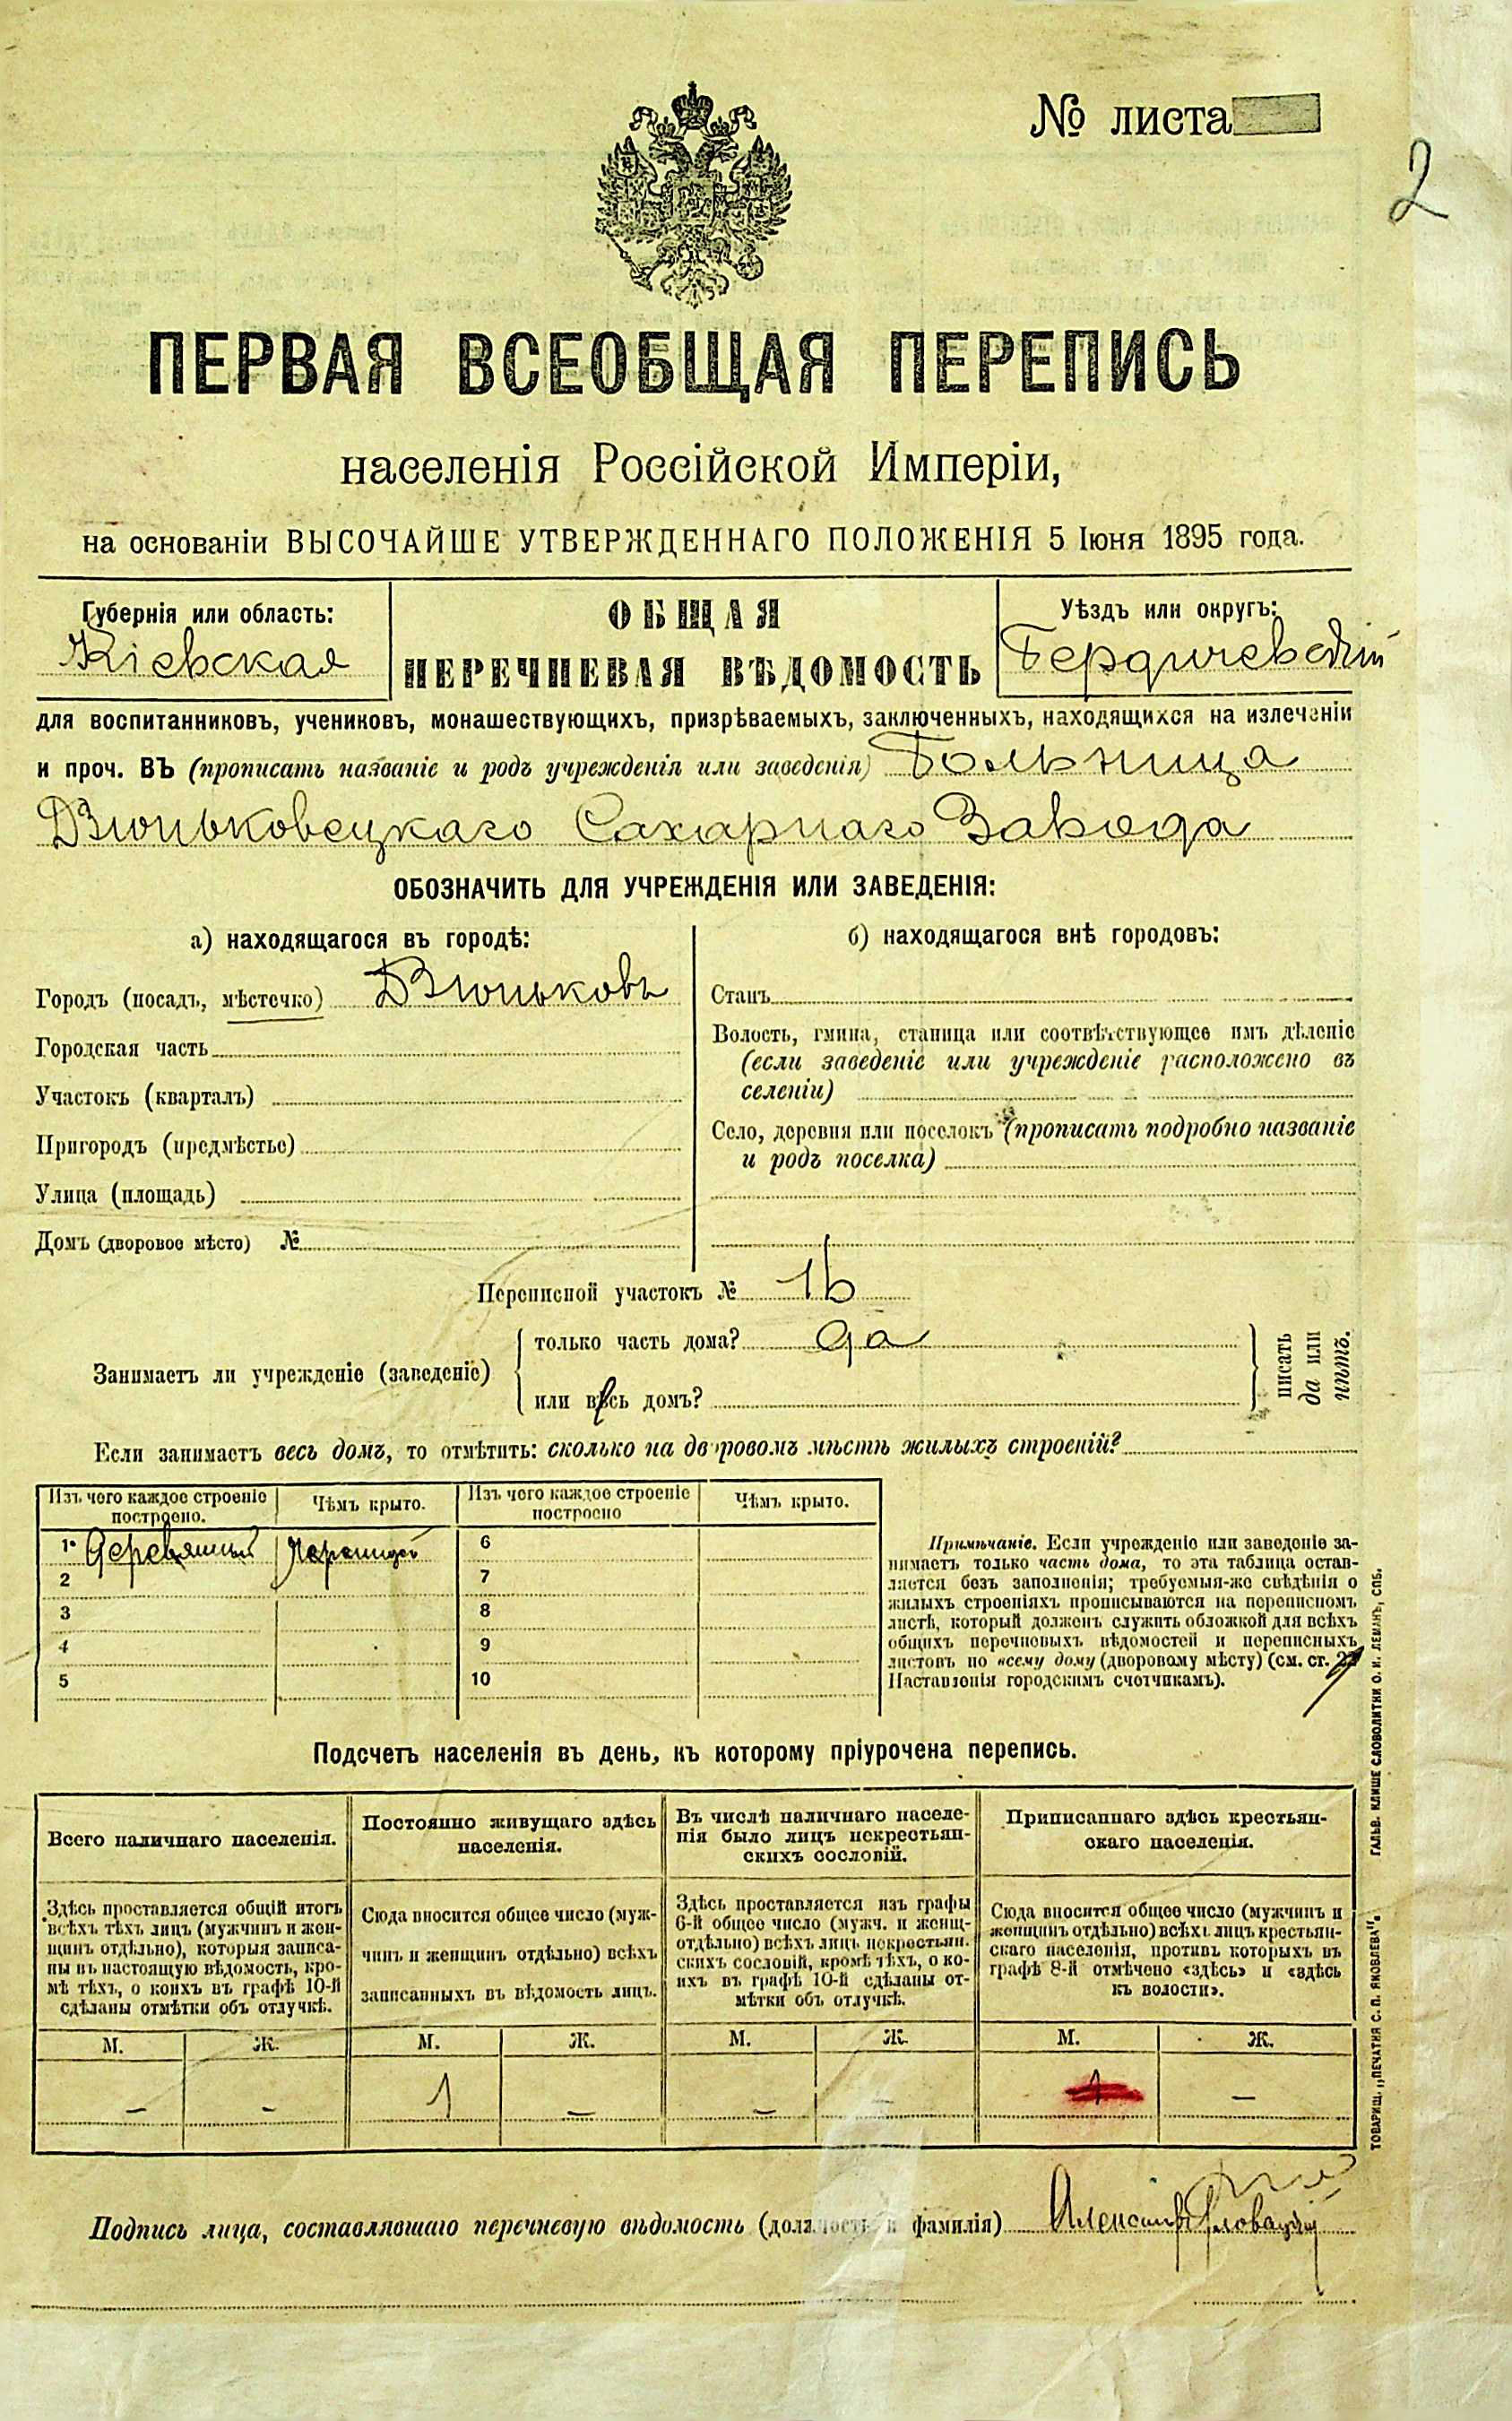 № листа
2
ПЕРВАЯ ВСЕОБЩАЯ ПЕРЕПИСЬ
населенія Россійской Имперіи,
на основаніи ВЫСОЧАЙШЕ УТВЕРЖДЕННАГО ПОЛОЖЕНІЯ 5 Іюня 1895 года.
Губернія или область:
Кіевская
ОБЩАЯ
ПЕРЕЧНЕВАЯ ВѢДОМОСТЬ
Уѣздъ или округъ:
Бердичевскій
для воспитанниковъ, учениковъ, монашествующихъ, призрѣваемыхъ, заключенныхъ, находящихся на излеченіи
и проч. ВЪ (прописать названіе и родъ учрежденія или заведенія) Больница
Дзюньковецкаго Сахарнаго Завода
ОБОЗНАЧИТЬ ДЛЯ УЧРЕЖДЕНІЯ ИЛИ ЗАВЕДЕНІЯ:
а) находящагося въ городѣ:
Городъ (посадъ, мѣстечко) Дзюньковъ
Городская часть
Участокъ (кварталъ)
Пригородъ (предмѣстье)
Улица (площадь)
Домъ (дворовое мѣсто) №
б) находящагося внѣ городовъ:
Станъ
Волость, гмина, станица или соотвѣтствующее имъ дѣленіе
(если заведеніе или учрежденіе расположено въ
селеніи)
Село, деревня или поселокъ (прописать подробно названіе
и родъ поселка)
Переписной участокъ № 16
Занимаетъ ли учрежденіе (заведеніе)
только часть дома? да
или весь домъ?
писать
да или
нѣтъ.
Если занимаетъ весь домъ, то отмѣтить: сколько на дворовомъ мѣстѣ жилыхъ строеній?
Изъ чего каждое строеніе
построено.
Чѣмъ крыто.
Изъ чего каждое строеніе
построено
Чѣмъ крыто.
1
6
2
7
3
8
4
9
5
10
Примѣчаніе. Если учрежденіе или заведеніе за-
нимаетъ только часть дома, то эта таблица остав-
ляется безъ заполненія; требуемыя-же свѣдѣнія о
жилыхъ строеніяхъ прописываются на переписномъ
листѣ, который долженъ служить обложкой для всѣхъ
общихъ перечневыхъ вѣдомостей и переписныхъ
листовъ по всему дому (дворовому мѣсту) (см. ст.
Наставленія городскимъ счетчикамъ).
Подсчетъ населенія въ день, къ которому пріурочена перепись.
Всего наличнаго населенія.
Постоянно живущаго здѣсь
населенія.
Въ числѣ наличнаго населе-
нія было лицъ некрестьян-
скихъ сословій.
Приписаннаго здѣсь крестьян-
скаго населенія.
Здѣсь проставляется общій итогъ
всѣхъ тѣхъ лицъ (мужчинъ и жен-
щинъ отдѣльно), которыя записа-
ны въ настоящую вѣдомость, кро-
мѣ тѣхъ, о коихъ въ графѣ 10-й
сдѣланы отмѣтки объ отлучкѣ.
Сюда вносится общее число (муж-
чинъ и женщинъ отдѣльно) всѣхъ
записанныхъ въ вѣдомость лицъ.
Здѣсь проставляется изъ графы
6-й общее число (мужч. и женщ.
отдѣльно) всѣхъ лицъ некрестьян.
скихъ сословій, кромѣ тѣхъ, о ко-
ихъ въ графѣ 10-й сдѣланы от-
мѣтки объ отлучкѣ.
Сюда вносится общее число (мужчинъ и
женщинъ отдѣльно) всѣхъ лицъ крестьян-
скаго населенія, противъ которыхъ въ
графѣ 8-й отмѣчено «здѣсь» и «здѣсь
къ волости».
М. Ж. М. Ж. М. Ж. М. Ж.
– – 1 – – – 1 –
Подпись лица, составлявшаго перечневую вѣдомость (должность и фамилія)
ТОВАРИЩ. „ПЕЧАТНЯ С. П. ЯКОВЛЕВА". ГАЛЬВ. КЛИШЕ СЛОВОЛИТНИ О. И. ЛЕМАНЪ, СПБ.